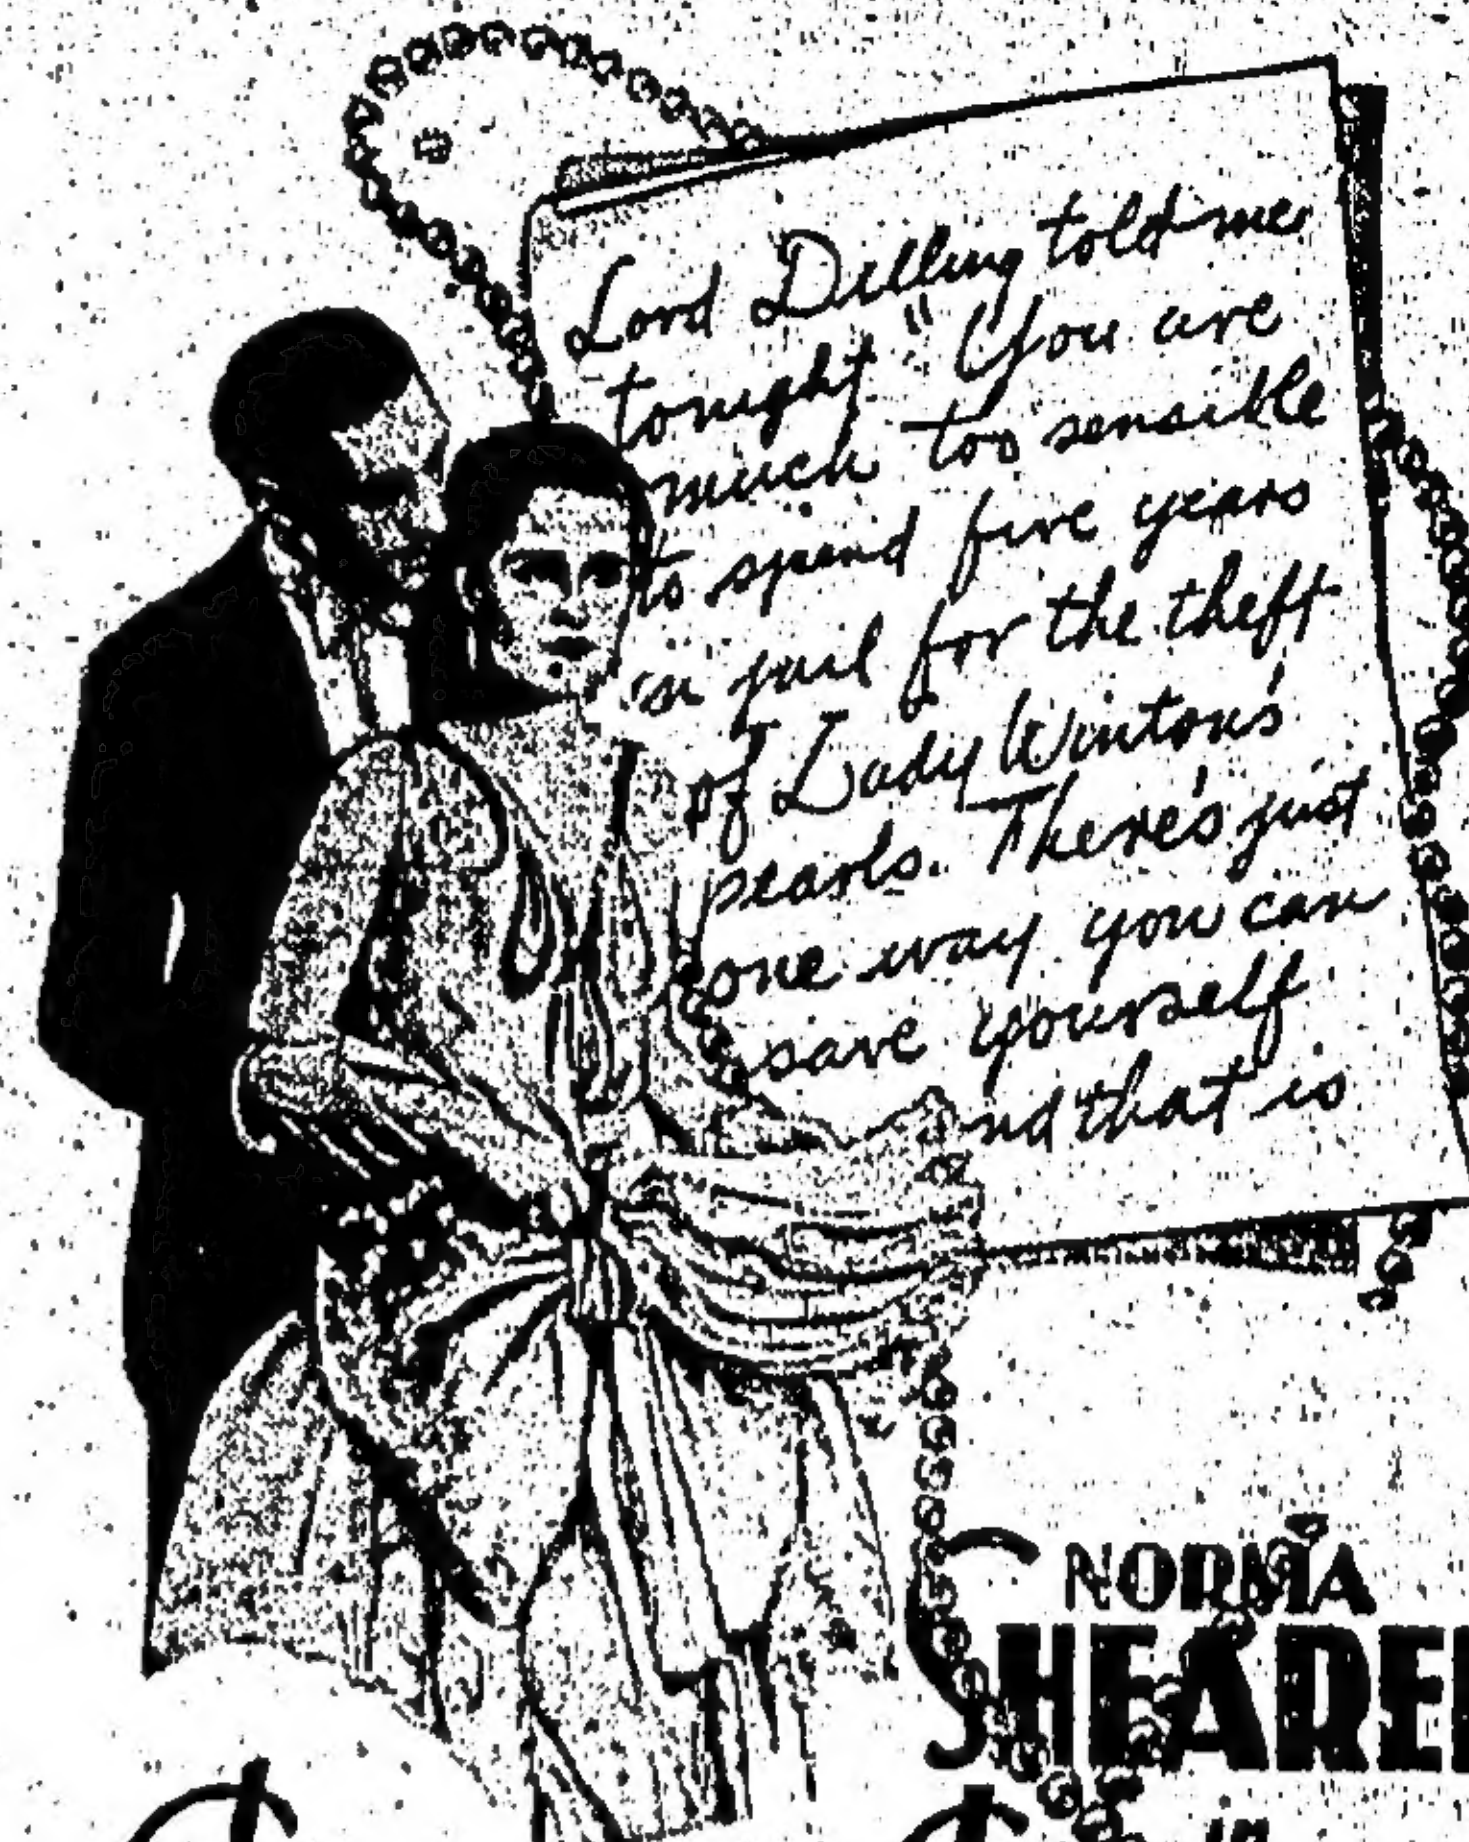 Lord Dilling told me
tonight "You are
much too sensible
to spend five years
in jail for the theft
of Lady Winton's
pearls. There's just
one way you can
save yourself
and that is
NORMA
SHEARER
in